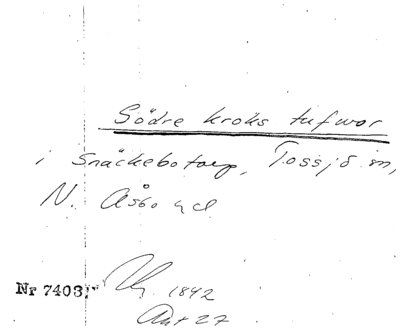 Södre kroks tufwor
i Snäckebotorp, Tossjö sn,
N. Åsbo hd
Nr 7403
1842
Akt 27